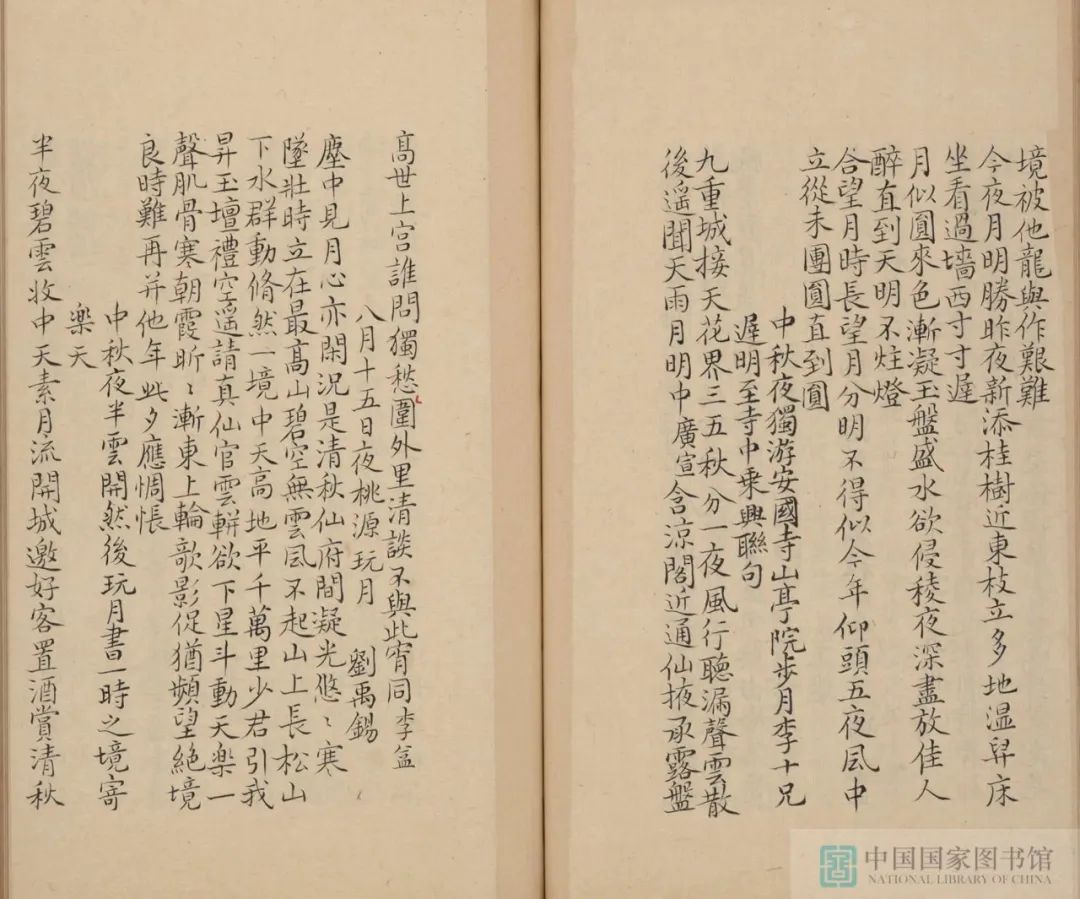 境被他龍與作艱難
今夜月明勝昨夜新添桂樹近東枝立多地温舁床
坐看過墻西寸寸遲
月似圓來色漸凝玉盤盛水欲侵稜夜深盡放佳人
醉直到天明不炷燈
合望月時長望月分明不得似今年仰頭五夜風中
立從未團圓直到圓
中秋夜獨游安國寺山亭院步月李十兄
遲明至寺中乗興聯句
九重城接天花界三五秋分一夜風行聴漏聲雲散
後遥聞天雨月明中廣宣含凉閣近通仙掖承露盤
高世上宫誰問獨愁圍外里清談不與此宵同李益
八月十五日夜桃源玩月 劉禹錫
塵中見月心亦閑況是清秋仙府間凝光悠〻寒
墜壯時立在最高山碧空無雲風不起山上長松山
下水群動翛然一境中天高地平千萬里少君引我
昇玉壇禮空遥請真仙官雲軿欲下星斗動天楽一
聲肌骨寒朝霞昕〻漸東上輪歌影促猶頻望絶境
良時難再并他年此夕應惆悵
中秋夜半雲開然後玩月書一時之境寄
楽天
半夜碧雲收中天素月流開城邀好客置酒賞清秋
中国国家图书馆
NATIONAL LIBRARY OF CHINA